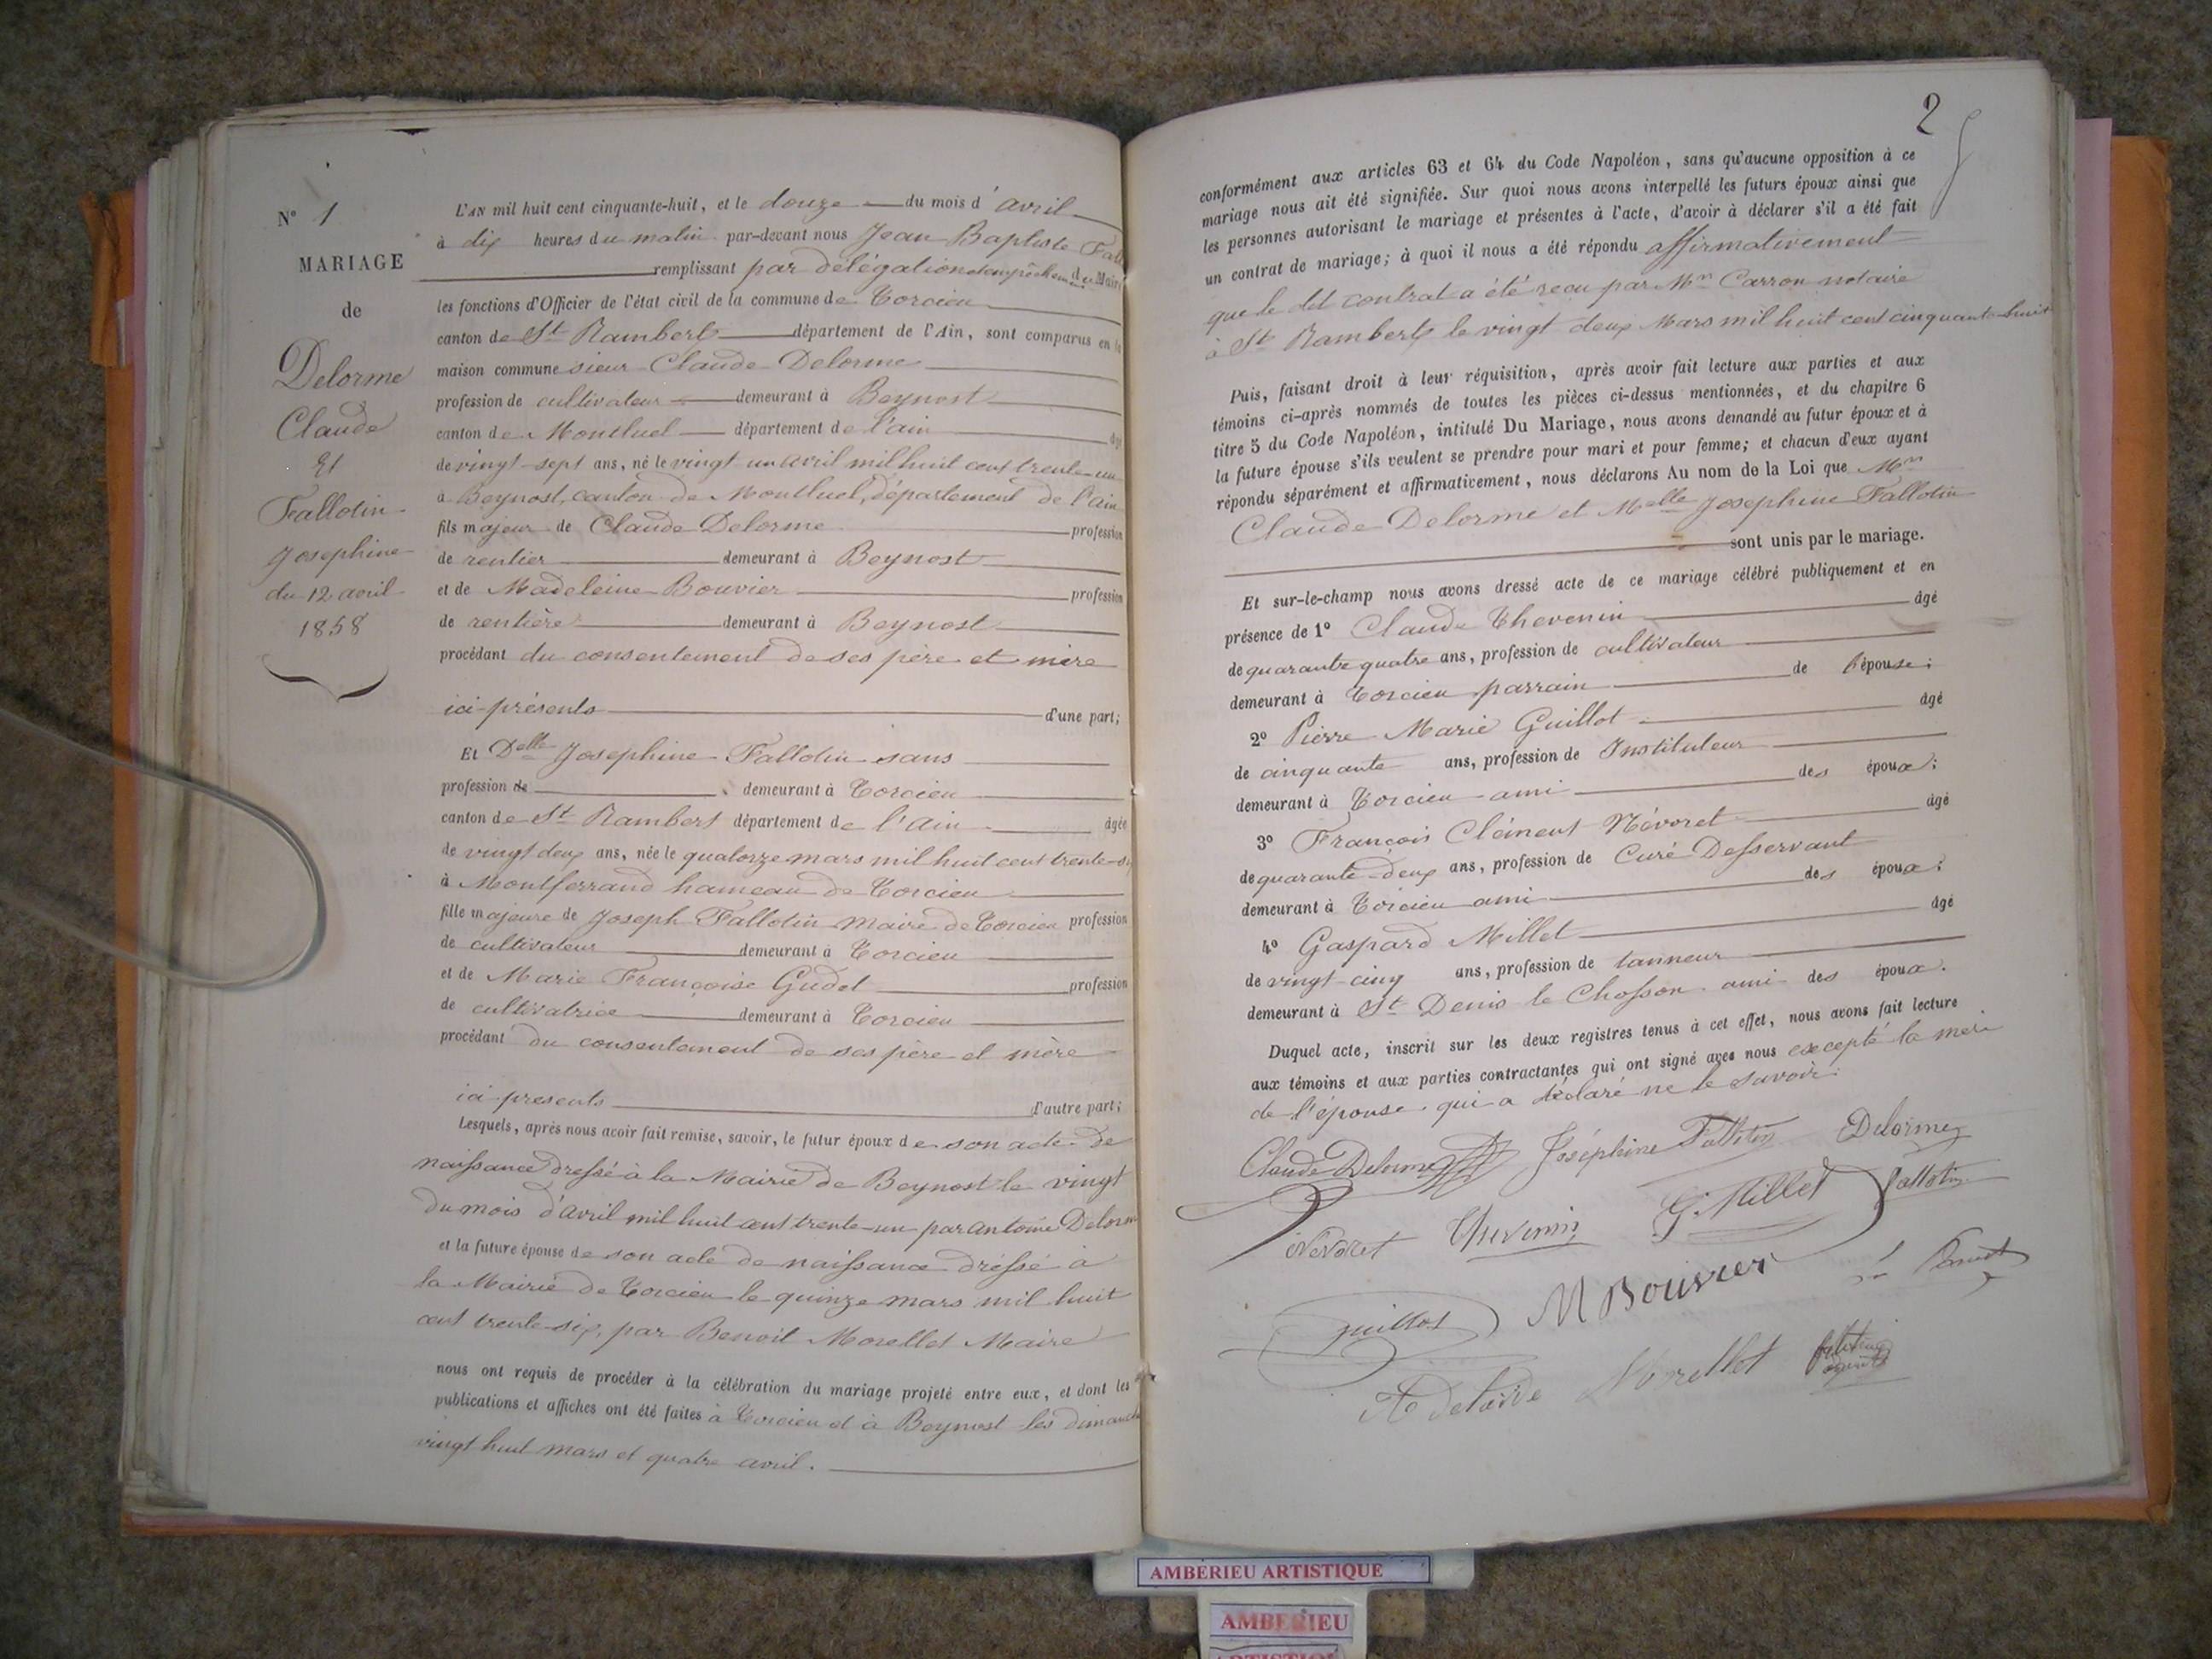 N° 1
MARIAGE
de
Delorme
Claude
Et
Fallotin
Josephine
du 12 avril
1858
L'AN mil huit cent cinquante-huit, et le douze du mois d'avril
à dix heures du matin par-devant nous Jean Baptiste
remplissant par délégation du Maire
les fonctions d'Officier de l'état civil de la commune de Torcieu
canton de St Rambert département de l'Ain, sont comparus en la
maison commune sieur Claude Delorme
profession de cultivateur demeurant à Beynost
canton de Montluel département de l'ain âgé
de vingt-sept ans, né le vingt un avril mil huit cent trente-un
à Beynost, canton de Montluel, département de l'ain
fils majeur de Claude Delorme profession
de rentier demeurant à Beynost
et de Madeleine Bouvier profession
de rentière demeurant à Beynost
procédant du consentement de ses père et mère
ici présents d'une part;
Et Delle Josephine Fallotin sans
profession de demeurant à Torcieu
canton de St Rambert département de l'ain âgée
de vingt deux ans, née le quatorze mars mil huit cent trente-six
à Montferrand hameau de Torcieu
fille majeure de Joseph Fallotin Maire de Torcieu profession
de cultivateur demeurant à Torcieu
et de Marie Françoise Gudet profession
de cultivatrice demeurant à Torcieu
procédant du consentement de ses père et mère
ici presents d'autre part;
Lesquels, après nous avoir fait remise, savoir, le futur époux de son acte de
naissance dressé à la Mairie de Beynost le vingt
du mois d'avril mil huit cent trente-un par antoine Delorme
et la future épouse de son acte de naissance dressé à
la Mairie de Torcieu le quinze mars mil huit
cent trente-six, par Benoit Morellet Maire
nous ont requis de procéder à la célébration du mariage projeté entre eux, et dont les
publications et affiches ont été faites à Torcieu et à Beynost les dimanches
vingt huit mars et quatre avril.
2
conformément aux articles 63 et 64 du Code Napoléon, sans qu'aucune opposition à ce
mariage nous ait été signifiée. Sur quoi nous avons interpellé les futurs époux ainsi que
les personnes autorisant le mariage et présentes à l'acte, d'avoir à déclarer s'il a été fait
un contrat de mariage; à quoi il nous a été répondu affirmativement
que le dit contrat a été reçu par Mre Carron notaire
à St Rambert le vingt deux Mars mil huit cent cinquante-huit
Puis, faisant droit à leur réquisition, après avoir fait lecture aux parties et aux
témoins ci-après nommés de toutes les pièces ci-dessus mentionnées, et du chapitre 6
titre 5 du Code Napoléon, intitulé Du Mariage, nous avons demandé au futur époux et à
la future épouse s'ils veulent se prendre pour mari et pour femme; et chacun d'eux ayant
répondu séparément et affirmativement, nous déclarons Au nom de la Loi que Mr
Claude Delorme et Melle Josephine Fallotin
sont unis par le mariage.
Et sur-le-champ nous avons dressé acte de ce mariage célébré publiquement et en
présence de 1° Claude Thevenin âgé
de quarante quatre ans, profession de cultivateur
demeurant à Torcieu parrain de l'épouse;
2° Pierre Marie Guillot âgé
de cinquante ans, profession de Instituteur
demeurant à Torcieu ami des époux;
3° François Clément Névoret âgé
de quarante-deux ans, profession de Curé Desservant
demeurant à Torcieu ami des époux;
4° Gaspard Millet âgé
de vingt cinq ans, profession de tanneur
demeurant à St Denis le Chosson ami des époux.
Duquel acte, inscrit sur les deux registres tenus à cet effet, nous avons fait lecture
aux témoins et aux parties contractantes qui ont signé avec nous excepté la mère
de l'épouse qui a déclaré ne le savoir.
Claude Delorme Joséphine Fallotin Delorme
Névoret Thevenin G. Millet fallotin
guillot M Bouvier
Adelaïde Morellet
AMBERIEU ARTISTIQUE
AMBERIEU
ARTISTIQUE